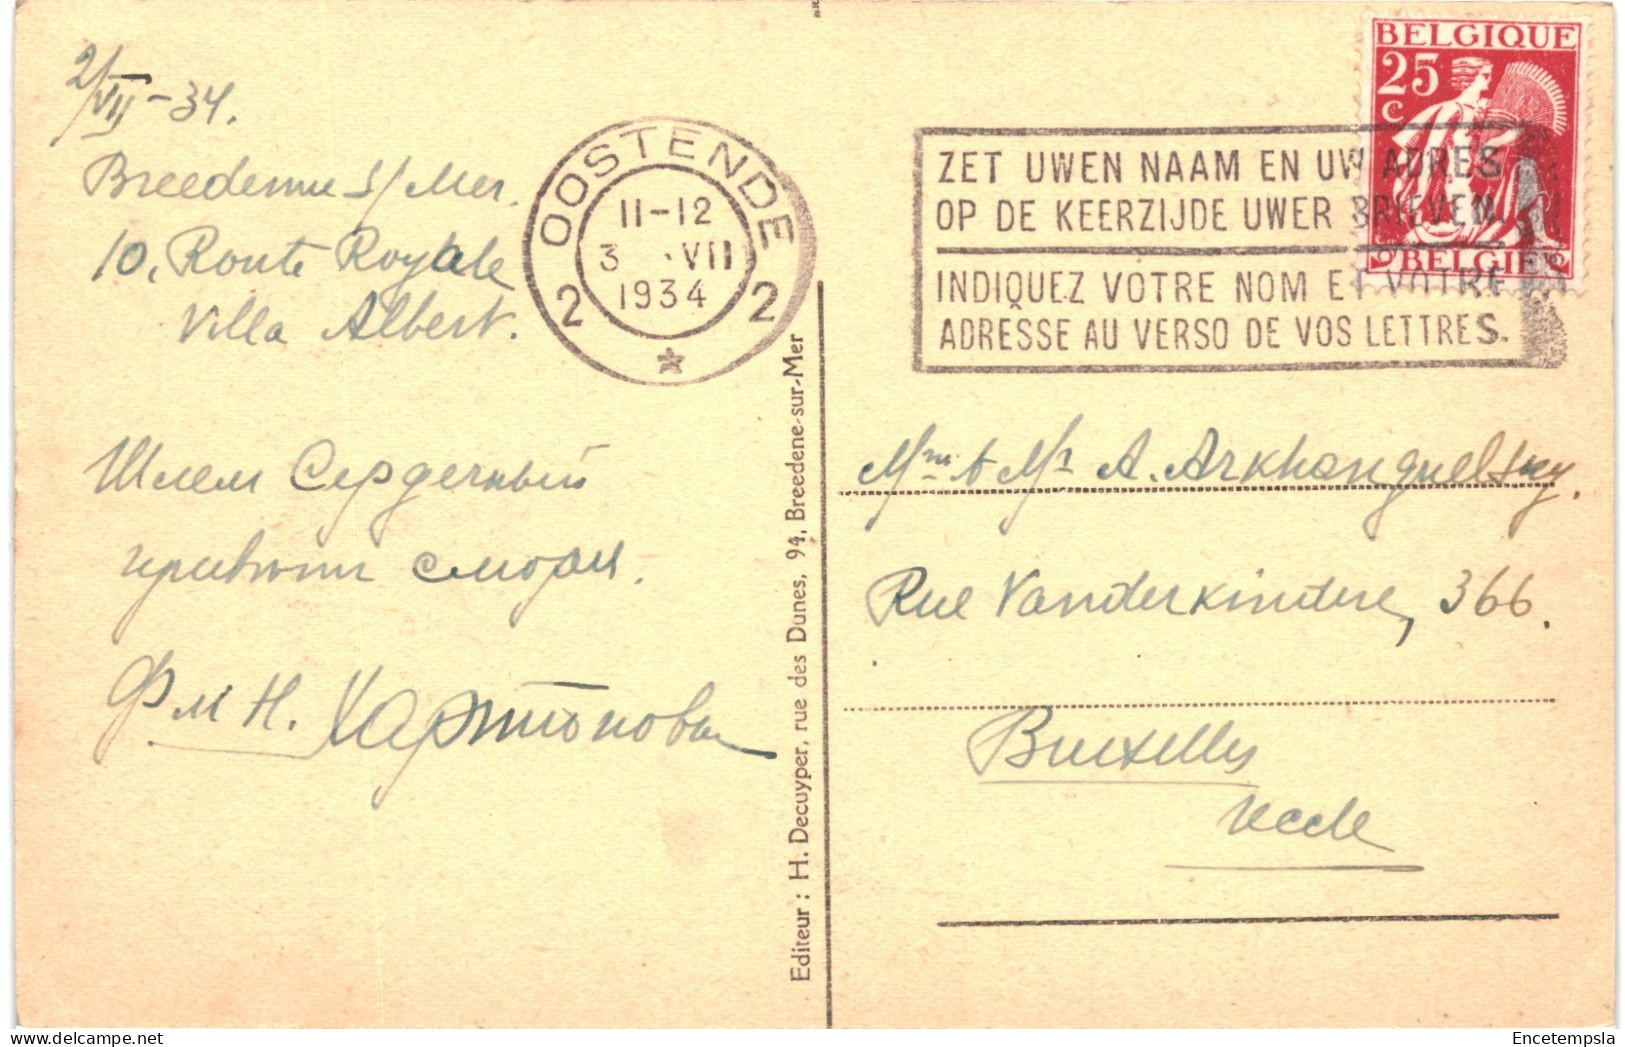 2/VII-34.
Breedene s/Mer.
10, Route Royale
Villa Albert.
Шлем Сердечный
привет с моря.
H. Хартонович
OOSTENDE
11-12
3 VII
1934
2 2
ZET UWEN NAAM EN UW ADRES
OP DE KEERZIJDE UWER BRIEVEN.
INDIQUEZ VOTRE NOM ET VOTRE
ADRESSE AU VERSO DE VOS LETTRES.
BELGIQUE
25
C
BELGIE
Editeur : H. Decuyper, rue des Dunes, 94, Breedene-sur-Mer
Mme & Mr A. Arkhanguelsky.
Rue Vanderkindere, 366.
Bruxelles
Uccle
Encetempsla